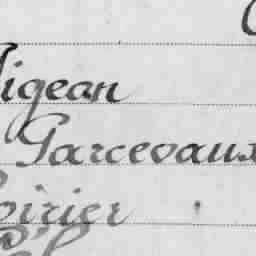 igean
Parcevaux
oirier